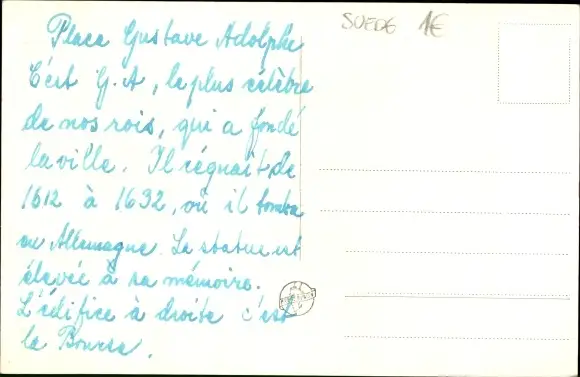 SUEDE 1€
Place Gustave Adolphe
C'est G.A, le plus célèbre
de nos rois, qui a fondé
la ville. Il régnait de
1612 à 1632, où il tomba
en Allemagne. La statue est
élevée à sa mémoire.
L'édifice à droite c'est
la Bourse.